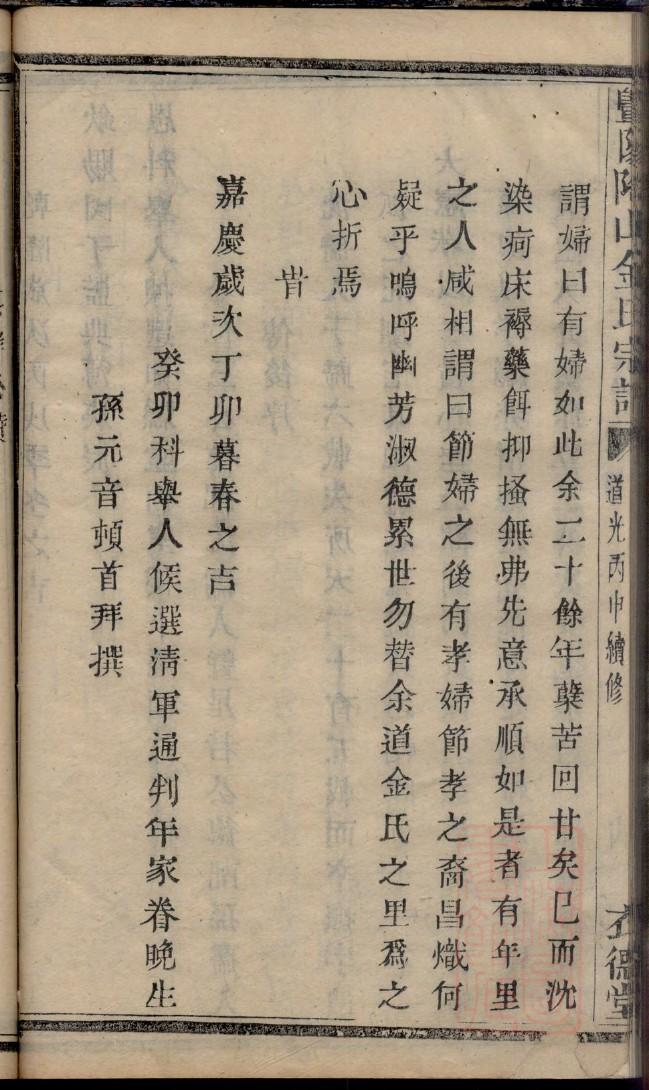 暨陽陶山金氏宗譜
道光丙申續修
衣德堂
謂婦曰有婦如此余二十餘年蘖苦回甘矣巳而沈
染疴床褥藥餌抑搔無弗先意承順如是者有年里
之人咸相謂曰節婦之後有孝婦節孝之裔昌熾何
疑乎嗚呼幽芳淑德累世勿替余道金氏之里爲之
心折焉
旹
嘉慶歲次丁卯暮春之吉
癸卯科舉人候選清軍通判年家眷晚生
孫元音頓首拜撰